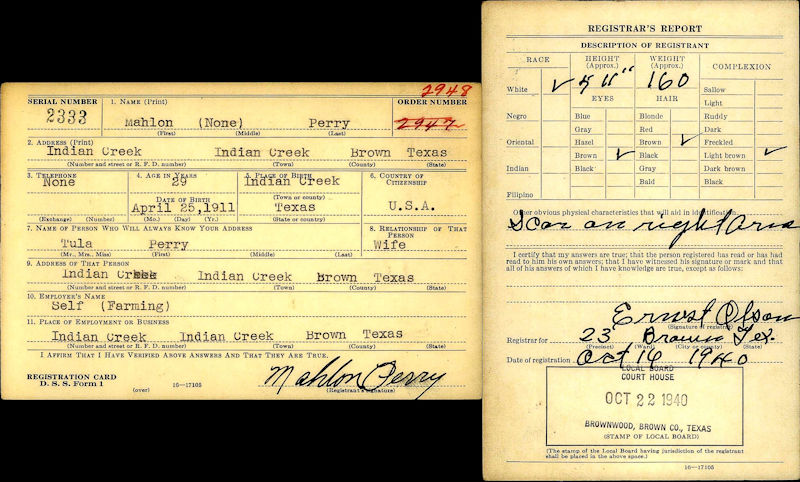 2948
SERIAL NUMBER 1. NAME (Print) ORDER NUMBER
2333 Mahlon (None) Perry 2947
(First) (Middle) (Last)
2. ADDRESS (Print)
Indian Creek Indian Creek Brown Texas
(Number and street or R. F. D. number) (Town) (County) (State)
3. TELEPHONE 4. AGE IN YEARS 5. PLACE OF BIRTH 6. COUNTRY OF CITIZENSHIP
None 29 Indian Creek
DATE OF BIRTH (Town or county)
April 25,1911 Texas U.S.A.
(Exchange) (Number) (Mo.) (Day) (Yr.) (State or country)
7. NAME OF PERSON WHO WILL ALWAYS KNOW YOUR ADDRESS 8. RELATIONSHIP OF THAT PERSON
Tula Perry Wife
(Mr., Mrs., Miss) (First) (Middle) (Last)
9. ADDRESS OF THAT PERSON
Indian Creek Indian Creek Brown Texas
(Number and street or R. F. D. number) (Town) (County) (State)
10. EMPLOYER'S NAME
Self (Farming)
11. PLACE OF EMPLOYMENT OR BUSINESS
Indian Creek Indian Creek Brown Texas
(Number and street or R. F. D. number) (Town) (County) (State)
I AFFIRM THAT I HAVE VERIFIED ABOVE ANSWERS AND THAT THEY ARE TRUE.
REGISTRATION CARD
D. S. S. Form 1 (over) 16—17105 Mahlon Perry
(Registrant's signature)
REGISTRAR'S REPORT
DESCRIPTION OF REGISTRANT
RACE HEIGHT (Approx.) WEIGHT (Approx.) COMPLEXION
White ✓ 5 11" 160 Sallow
Light
EYES HAIR
Negro Blue Blonde Ruddy
Gray Red Dark
Oriental Hazel Brown ✓ Freckled
Brown ✓ Black Light brown ✓
Indian Black Gray Dark brown
Bald Black
Filipino
Other obvious physical characteristics that will aid in identification
Scar on right Arm
I certify that my answers are true; that the person registered has read or has had
read to him his own answers; that I have witnessed his signature or mark and that
all of his answers of which I have knowledge are true, except as follows:
Ernest Olson
(Signature of registrar)
Registrar for 23 Brown Tex.
(Precinct) (Ward) (City or county) (State)
Date of registration Oct 16 1940
LOCAL BOARD
COURT HOUSE
OCT 22 1940
BROWNWOOD, BROWN CO., TEXAS
(STAMP OF LOCAL BOARD)
(The stamp of the Local Board having jurisdiction of the registrant
shall be placed in the above space.)
16—17105